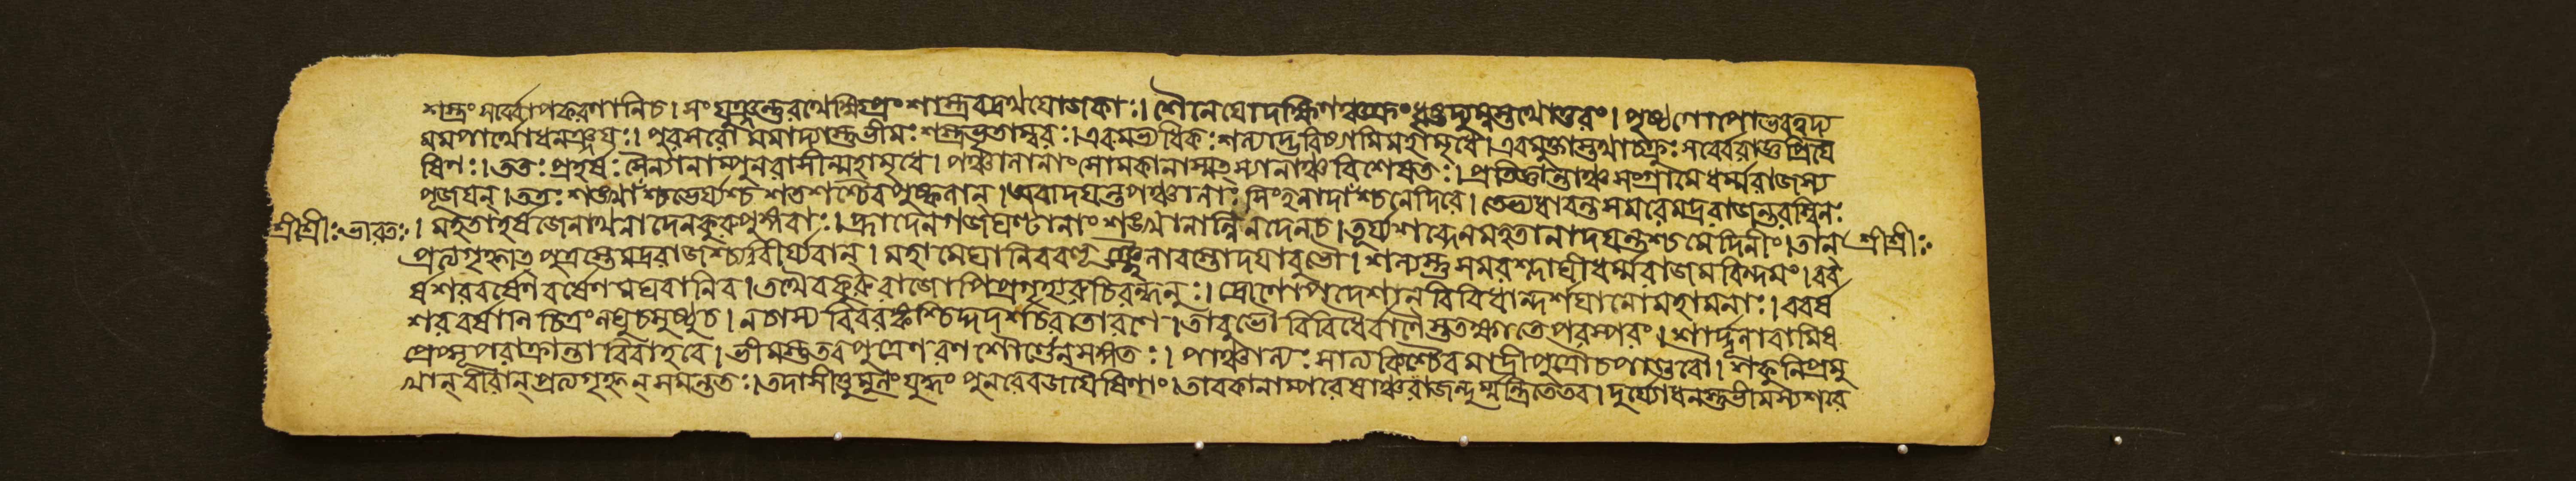 শস্ত্রং সর্ব্বোপকরণানিচ। সংযুঞ্জন্তুরথেক্ষিপ্রং শাস্ত্রবদ্রথযোজকাঃ। শৈনেযোদক্ষিণঞ্চক্রংধৃষ্টদ্যুম্নস্তথোত্তরং। পৃষ্ঠগোপোভবত্বদ্য
মমপার্থোধনঞ্জযঃ। পুরঃসরো মমাদ্যাস্তুভীমঃ শস্ত্রভৃতাম্বরঃ। এবমভ্যধিকঃ শল্যাদ্ভবিষ্যামিমহামৃধে। এবমুক্তাস্তথাচক্রুঃ সর্ব্বেরাজ্ঞঃপ্রিযৈ
ষিণঃ। ততঃ প্রহর্ষঃ সৈন্যানাম্পুনরাসীন্মহামৃধে। পঞ্চালানাং সোমকানাম্মৎস্যানাঞ্চ বিশেষতঃ। প্রতিজ্ঞান্তাঞ্চ সংগ্রামে ধর্ম্মরাজস্য
পূজযন্। ততঃ শঙ্খাংশ্চভের্য্যশ্চ শতশশ্চৈবপুষ্কলান্। অবাদযন্তপঞ্চালাঃ সিংহনাদাংশ্চনেদিরে। তেভ্যধাবন্ত সমরেমদ্ররাজন্তরস্বিনঃ
শ্রীশ্রীঃভারতঃ। মহতাহর্ষজেনাথনাদেনকুরুপুঙ্গবাঃ। হ্রাদেনগজঘণ্টানাং শঙ্খানান্নিনদেনচ। তূর্য্যশব্দেনমহতানাদযন্তশ্চমেদিনীং। তান্ শ্রীশ্রীঃ
প্রত্যগৃহ্ণাত্ পুত্রস্তেমদ্ররাজশ্চবীর্য্যবান্। মহামেঘানিববহূ শৈলাবস্তোদযাবুভৌ। শল্যস্তু সমরশ্লাঘীধর্ম্মরাজমরিন্দমং। ববর্
ষশরবর্ষেণ বর্ষেণ মঘবানিব। তথৈবকুরুরাজোপিপ্রগৃহ্যরুচিরন্ধনুঃ। দ্রোণোপদেশান্ বিবিধান্দর্শযানোমহামনাঃ। ববর্ষ
শরবর্ষাণি চিত্রংলঘুচসুষ্ঠুচ। নচাস্য বিবরঙ্কশ্চিদ্দদর্শচরতোরণে। তাবুভৌ বিবিধৈর্বাণৈস্ততক্ষাতেপরস্পরং। শার্দ্দূলাবামিষ
প্রেপ্সূপরাক্রান্তাবিবাহবে। ভীমস্তুতবপুত্রেণ রণশৌণ্ডেনসঙ্গতঃ। পাঞ্চাল্যঃ সাত্যকিশ্চৈব মাদ্রীপুত্রৌচপাণ্ডবৌ। শকুনিপ্রমু
খান্ বীরান্ প্রত্যগৃহ্ণন্ সমন্ততঃ। তদাসীত্তুমুলং যুদ্ধং পুনরেবজযৈষিণাং। তাবকানাম্পরেষাঞ্চরাজন্দুর্ম্মন্ত্রিতেতব। দুর্য্যোধনস্তুভীমস্যশরে